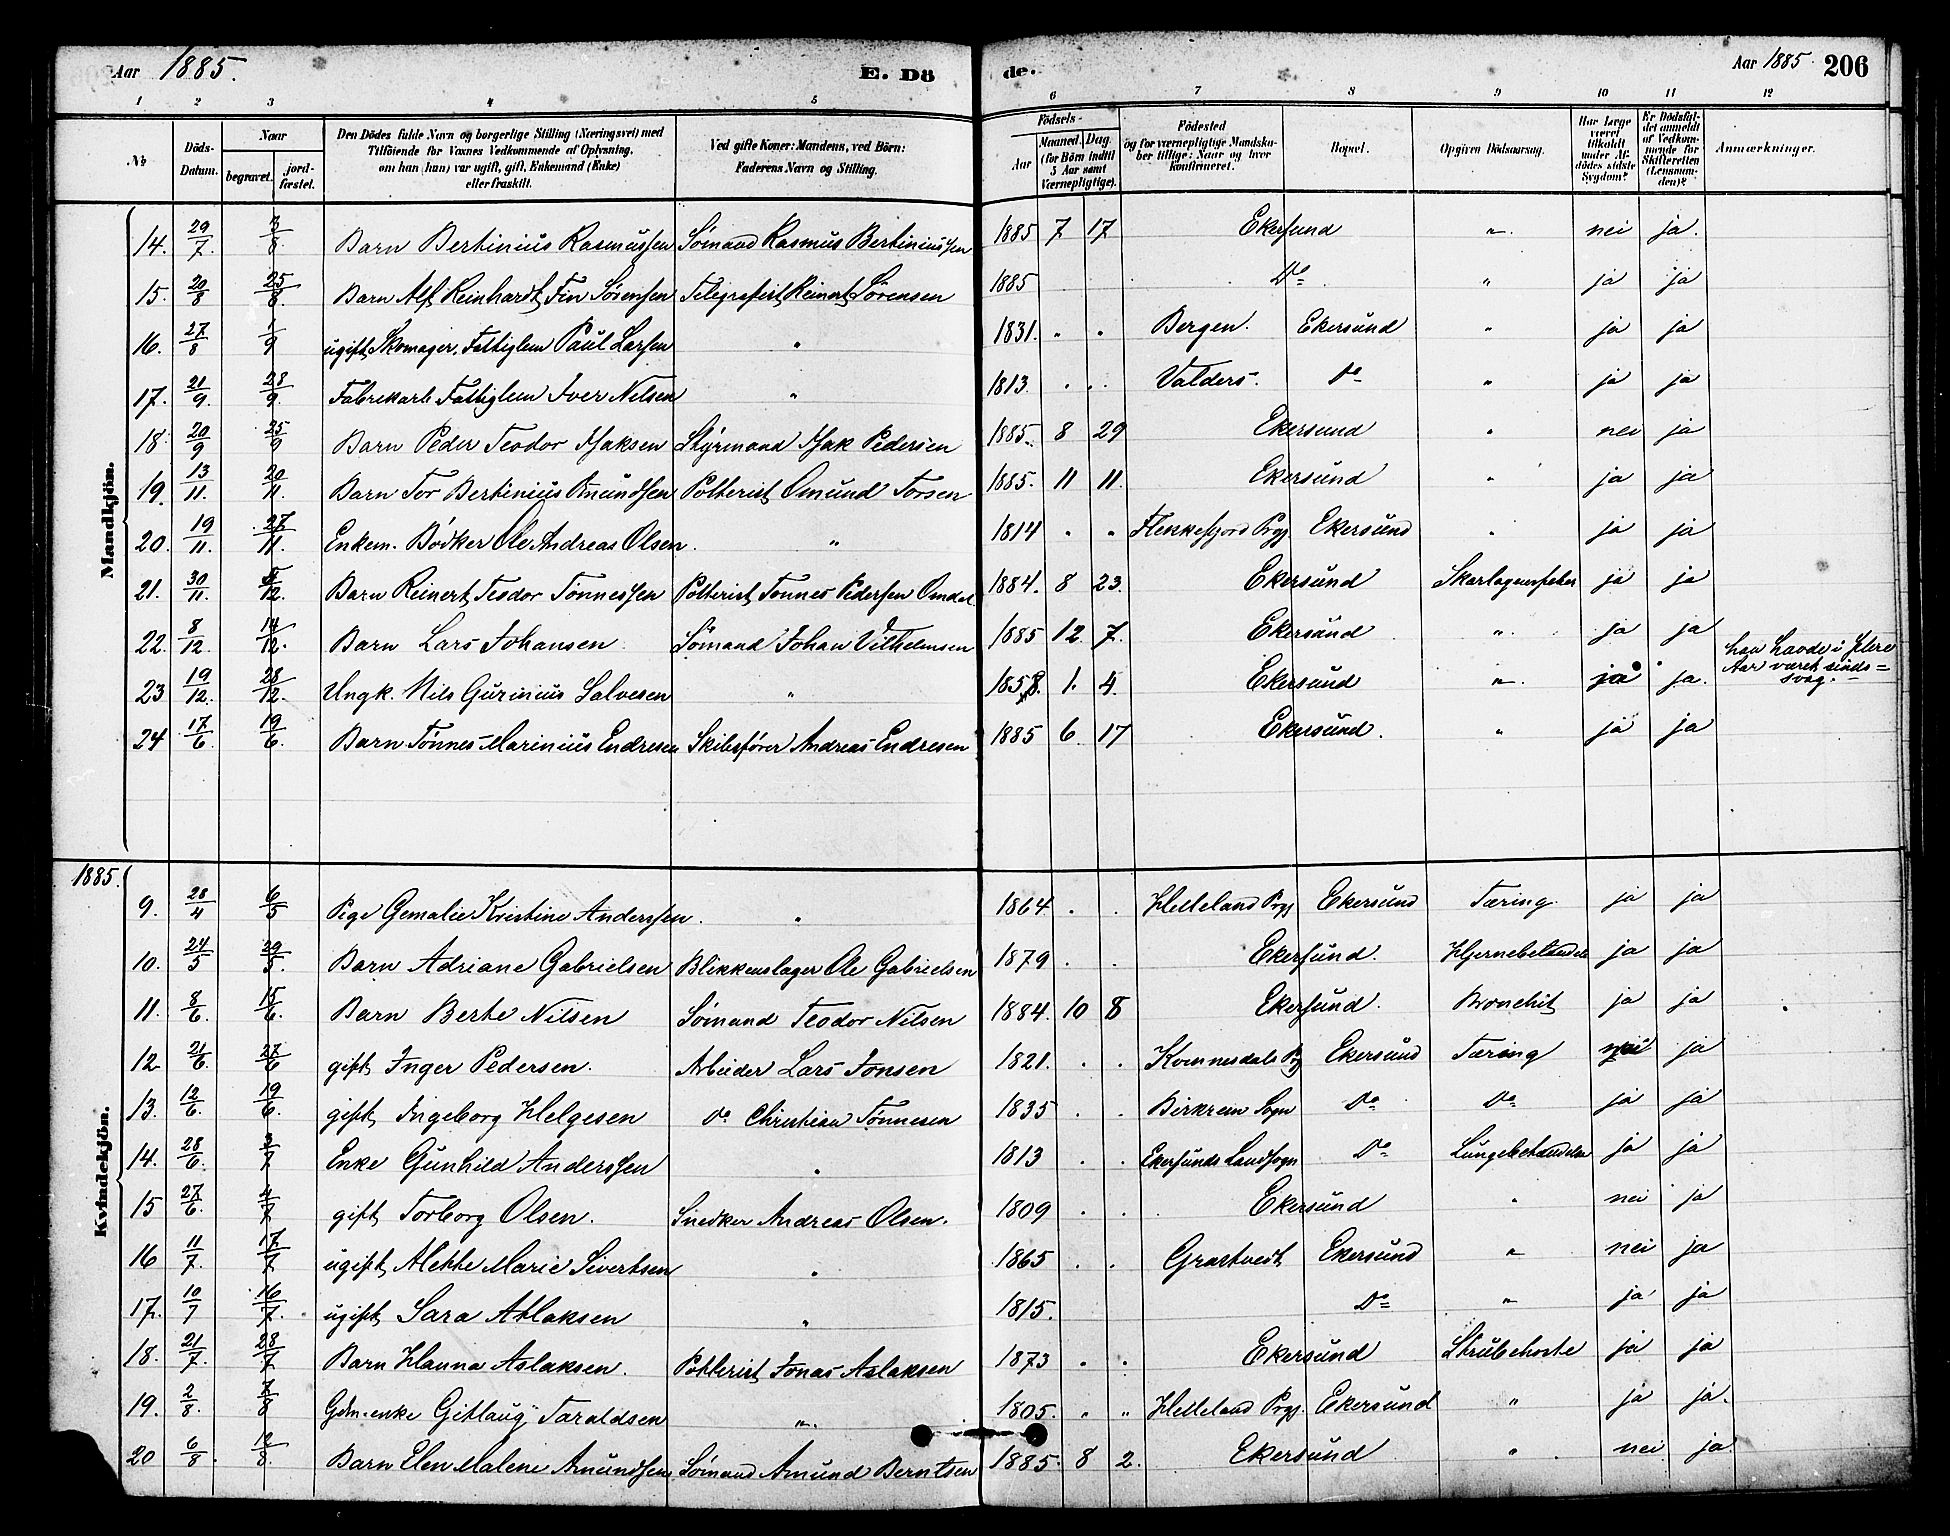 Aar 1885. E. Dö de. Aar 1885. 206
1 2 3 4 5 6 7 8 9 10 11 12
No Döds-Datum. Naar begravet. jord-fæstet. Den Dödes fulde Navn og borgerlige Stilling (Næringsvei) med Tilföiende for Voxnes Vedkommende af Oplysning, om han (hun) var ugift, gift, Enkemand (Enke) eller fraskilt. Ved gifte Koner: Mandens, ved Börn: Faderens Navn og Stilling. Födsels- Aar Maaned. Dag. (for Börn indtil 5 Aar samt Værnepligtige). Födested og for værnepligtige Mandskaber tillige: Naar og hvor konfirmeret. Bopæl. Opgiven Dödsaarsag. Har Læge været tilkaldt under Afdödes sidste Sygdom? Er Dödsfaldet anmeldt af Vedkommende for Skifteretten (Lensmanden)? Anmærkninger.
Mandkjön.
14. 29/7. 3/8. Barn Bertinius Rasmussen Sömand Rasmus Bertiniussen 1885 7 17 Ekersund " nei ja.
15. 20/8 25/8. Barn Alf Reinhardt Fin Sørensen Telegrafist Reinert Sørensen 1885 Do " ja ja
16. 27/8 1/9 ugift Skomager, Fattiglem Paul Larsen " 1831. " " Bergen. Ekersund " ja ja
17. 21/9. 28/9. Fabrikarb. Fattiglem Iver Nilsen " 1813. Valders. Do " ja ja
18. 20/9 25/9 Barn Peder Teodor Isaksen Styrmand Isak Pedersen 1885. 8 29 Ekersund " nei ja
19. 13/11. 20/11. Barn Tor Bertinius Omundsen Potterist Omund Torsen 1885. 11 11. Ekersund " ja ja
20. 19/11. 27/11. Enkem. Bödker Ole Andreas Olsen. " 1814 " " Flekkefjord Prgj Ekersund " ja ja
21. 30/11. 5/12. Barn Reinert Teodor Tönnessen Potterist Tönnes Pedersen Omdal 1884. 8 23. Ekersund Skarlagensfeber ja ja
22. 8/12. 14/12. Barn Lars Johansen Sömand Johan Vilhelmsen 1885 12. 7. Ekersund " ja ja
23 19/12. 28/12. Ungk. Nils Gurinius Salvesen " 1858. 1. 4. Ekersund " ja ja. han havde i flere Aar været sinds=svag.
24 17/6 19/6. Barn Tönnes Marinius Endresen Skibsförer Andreas Endresen 1885 6 17 Ekersund. " ja ja
1885.
Kvindekjön.
9. 28/4 6/5 Pige Gemalie Kristine Anderssen. " 1864 Helleland Prgj Ekersund Tæring. ja ja
10. 24/5 29/5. Barn Adriane Gabrielsen Blikkenslager Ole Gabrielsen 1879 Ekersund. Hjernebetændelse ja ja
11. 8/6. 15/6. Barn Berte Nilsen Sömand Teodor Nilsen 1884. 10 8 Ekersund. Bronchit ja ja
12 21/6. 27/6 gift Inger Pedersen. Arbeider Lars Jonsen 1821. Kvinnesdals Prgj Ekersund Tæring nei ja
13. 12/6. 19/6. gift Ingeborg Helgesen Do Christian Tönnesen 1835 Birkrem Sogn Do Do ja ja
14. 28/6. 3/7 Enke Gunhild Anderssen " 1813 Ekersunds Landsogn Do Lungebetændelse ja ja
15 27/6. 4/7 gift Torborg Olsen. Snedker Andreas Olsen. 1809 Ekersund " nei ja
16 11/7. 17/7 ugift Alette Marie Sivertsen " 1865 Grastvedt Ekersund " nei ja
17. 10/7 16/7. ugift Sara Atlaksen " 1815. Do " ja ja
18. 21/7. 28/7 Barn Hanna Aslaksen. Potterist Jonas Aslaksen 1873 Ekersund Strubehoste ja ja
19. 2/8. 7/8 Gdm.enke Gitlaug Taraldsen " 1805. " " Helleland Prgj. Ekersund " ja ja.
20 6/8. 12/8. Barn Elen Malene Amundsen Sömand Amund Berntsen 1885. 8 2. Ekersund " nei ja